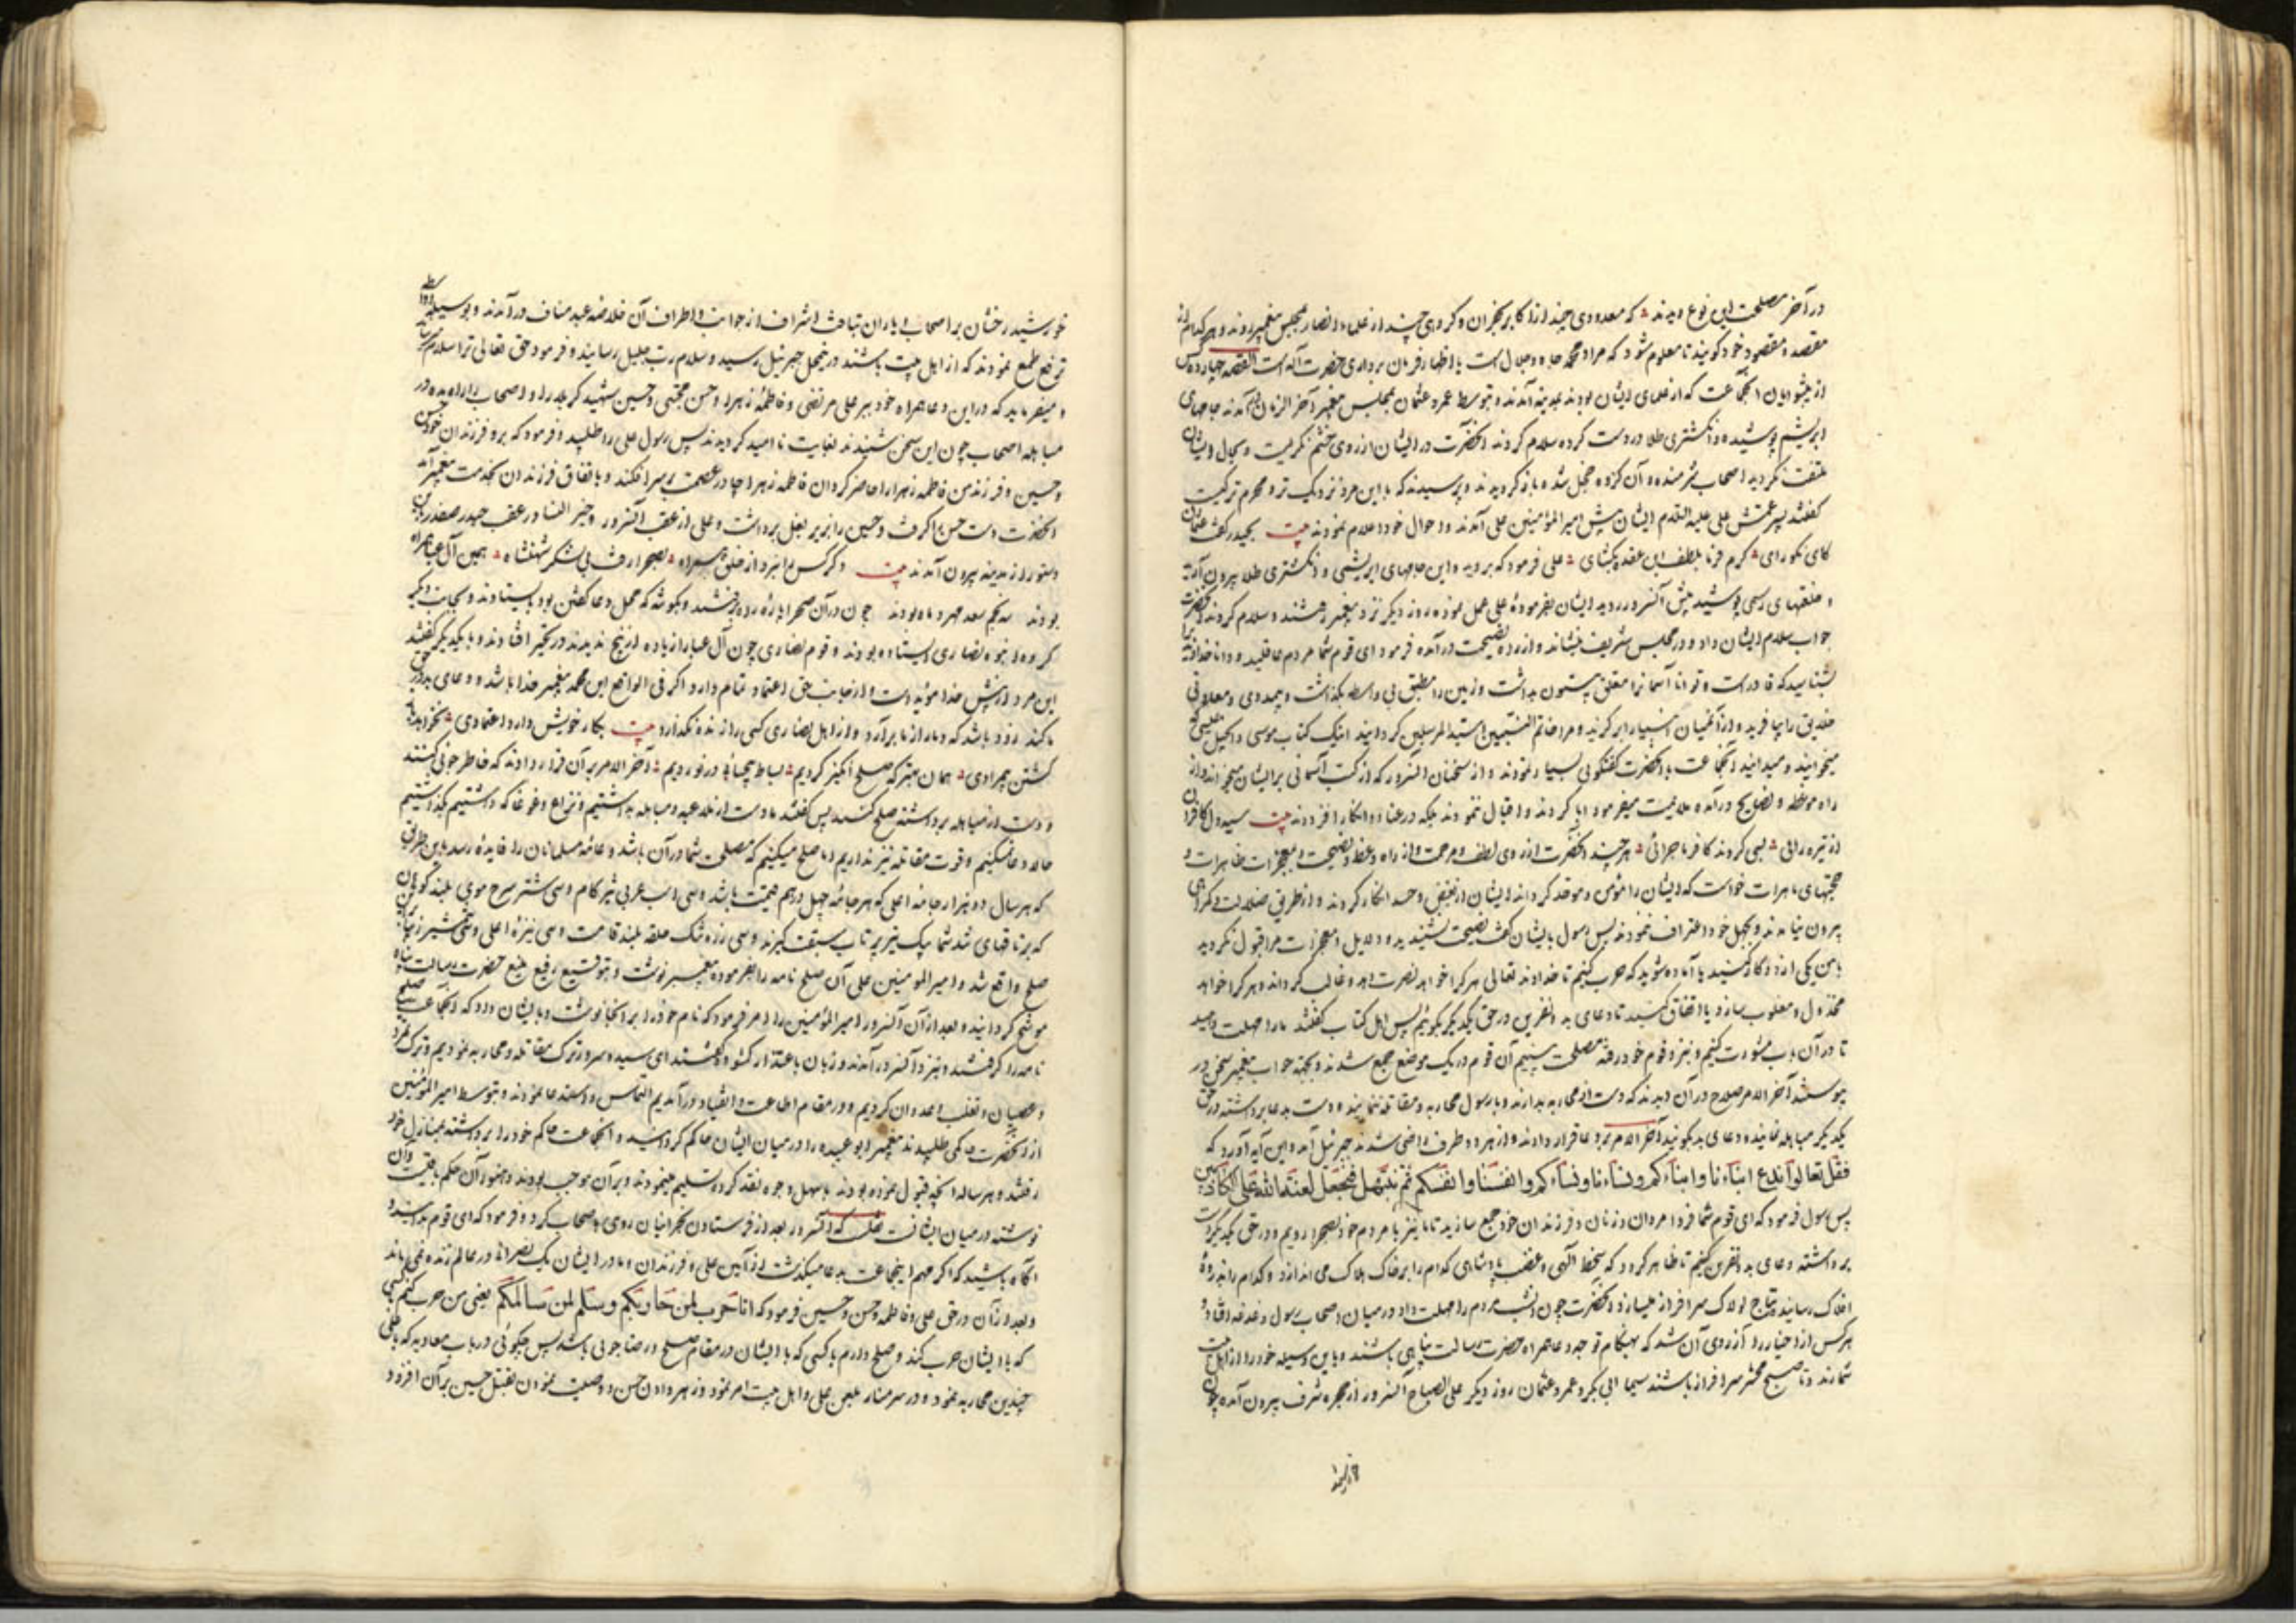 در آخر مصلحت این نوع دیدند که معدودی چند از اکابر نجران و گروهی چند از علماء انصار بمجلس پیغمبر روند و هر کدام از
مقصد و مقصود خود گویند تا معلوم شود که مراد محمد جاه و جلال است یا اظهار فرمان برداری حضرت آله است القصه چهارده کس
از پیشوایان آنجماعت که از علمای ایشان بودند بمدینه آمدند و بتوسط عمر و عثمان بمجلس پیغمبر آخر الزمان آمدند جامهای
ابریشم پوشیده و انگشتری طلا در دست کرده سلام کردند آنحضرت در ایشان از روی خشم نگریست و بحال ایشان
ملتفت نگردید اصحاب شرمنده و آن گروه خجل شده باز گردیدند و پرسیدند که باین مرد نزدیک تر و محرم تر کیست
گفتند پسر عمش علی علیه السلام ایشان پیش امیر المؤمنین علی آمدند و احوال خود اعلام نمودند بیت بحیدر گفت عثمان
کای نکورای کرم فرما بلطف این عقده بکشای علی فرمود که بروید و این جامهای ابریشمی و انگشتری طلا بیرون آرید
و خلعتهای رسمی پوشیده پیش آنسرور روید ایشان بفرمودهٔ علی عمل نموده روز دیگر نزد پیغمبر رفتند و سلام کردند آنحضرت
جواب سلام ایشان داد و در مجلس شریف بنشاند و از ره نصیحت در آمده فرمود ای قوم شما مردم عاقلید و دانا خدا را
بشناسید که قادر است و توانا آسمانرا معلق بیستون بداشت و زمین را مطبق بی واسطه بگذاشت و بیمددی و معاونی
خلایق را بیافرید و از آنمیان انبیا را برگزید و مرا خاتم النبیین و سید المرسلین گردانید اینک کتاب موسی و انجیل عیسی که
میخوانید و میدانید آنجماعت با آنحضرت گفتگوی بسیار نمودند و از سخنان آنسرور که از کتب آسمانی بر ایشان میخواند و از
راه موعظه و نصایح در آمده ملایمت میفرمود ابا کردند و اقبال ننمودند بلکه در عناد و انکار افزودند بیت سیه دل کافران
از تیره رائی بسی کردند کافر ماجرائی هر چند آنحضرت از روی لطف و مرحمت و از راه وعظ و نصیحت و بمعجزات ظاهرات و
حجتهای باهرات خواست که ایشان را مؤمن و موحد گرداند ایشان از بغض و حسد انکار کردند و از طریق ضلالت و گمراهی
بیرون نیامدند و بجهل خود اعتراف ننمودند پس رسول بایشان گفت نصیحت نشنیدید و دلایل و معجزات مرا قبول نکردید
باین یکی از دو کار کنید یا آماده شوید که حرب کنیم تا خداوند تعالی هر کرا خواهد نصرت دهد و غالب گرداند و هر کرا خواهد
مخذول و مغلوب سازد یا اتفاق کنید تا دعای بد و نفرین در حق یکدیگر بگوئیم پس اهل کتاب گفتند ما را مهلت دهید
تا در آن باب مشورت کنیم و بنزد قوم خود رفته مصلحت بینیم آن قوم در یک موضع جمع شدند و بجهة جواب پیغمبر سخن در
پیوستند آخر الامر صلاح در آن دیدند که دست از محاربه بدارند و با رسول محاربه و مقاتله ننمایند و دست بدعا برداشته در حق
یکدیگر مباهله نمایند و دعای بد بگویند آخر الامر بر دعا قرار دادند و از هر دو طرف راضی شدند جبرئیل آمد و این آیه آورد که
فقل تعالوا ندع ابناءنا وابناءکم ونساءنا ونساءکم وانفسنا وانفسکم ثم نبتهل فنجعل لعنة الله علی الکاذبین
پس رسول فرمود که ای قوم شما فردا مردان و زنان و فرزندان خود جمع سازید تا ما نیز با مردم خود بصحرا رویم و در حق یکدیگر دست
برداشته دعای بد و نفرین کنیم تا ظاهر گردد که سخط آلهی و غضب پادشاهی کدام را بر خاک هلاک می اندازد و کدام را بذروهٔ
افلاک رسانیده بتاج لولاک سرافراز میسازد آنحضرت چون آنشب مردم را مهلت داد در میان اصحاب رسول دغدغه افتاد و
هر کس از اخیار را آرزوی آن شد که بهنگام توجه دعا همراه حضرت رسالت پناهی باشند و باین وسیله خود را از اهل بیت
شمارند و تا صبح محشر سرافراز باشند سیما ابی بکر و عمر و عثمان روز دیگر علی الصباح آنسرور از حجره شرف بیرون آمده چون
خورشید رخشان بر اصحاب و یاران تبافت اشراف از جوانب و اطراف آن خلاصه عبد مناف در آمدند و بوسیله
ترفع طمع نمودند که از اهل بیت باشند در نیمحل جبرئیل رسید و سلام رب جلیل رسانید و فرمود حق تعالی ترا سلام میرساند
و میفرماید که در این دعا همراه خود ببر علی مرتضی و فاطمهٔ زهرا و حسن مجتبی و حسین شهید کربلا را و اصحاب را راه مده در
مباهله اصحاب چون این سخن شنیدند بغایت ناامید گردیدند پس رسول علی را طلبید و فرمود که برو فرزندان خود حسن
و حسین و فرزند من فاطمه زهرا را حاضر گردان فاطمه زهرا چادر عصمت بر سر افکند و باتفاق فرزندان بخدمت پیغمبر آمد
آنحضرت دست حسن را گرفت و حسین را بزیر بغل برداشت و علی از عقب آنسرور و خیر النسا در عقب حیدر صفدر باین
دستور از مدینه بیرون آمدند بیت دگر کس را نبرد از خلق همراه بصحرا رفت بی لشکر شهنشاه همین آل عبا همراه
بودند نه پنجم بعد مهر و ماه بودند چون در آن صحرا پارهٔ راه برفتند و بگوشه که محل دعا گفتن بود بایستادند و بجانب دیگر
گروه انبوه نصاری ایستاده بودند و قوم نصاری چون آل عبا را زیاده از پنج ندیدند در تحیر افتادند و با یکدیگر گفتند
این مرد از پیش خدا مؤید است و از جانب حق اعتماد تمام دارد اگر فی الواقع این محمد پیغمبر خدا باشد و دعای بد در حق
ما کند زود باشد که دمار از ما برآرد و از اهل نصاری کسی را زنده نگذارد بیت بکار خویش دارد اعتمادی نخواهد
گشتن بیمرادی همان بهتر که صلح انگیز گردیم بساط پیچیده در نوردیم آخر الامر بر آن قرار دادند که خاطر جوئی کنند
و دست از مباهله برداشته صلح کنند پس گفتند ما دست از ملاعنه و مباهله بداشتیم و نزاع و غوغا که داشتیم بگذاشتیم
حالا دعا نمیکنیم و قوت مقاتله نیز نداریم اما صلح میکنیم که مصلحت شما در آن باشد و عامه مسلمانان را فایده رسد باین طریق
که هر سال دو هزار جامه اعلی که هر جامه چهل درهم قیمت باشد و سی اسب عربی تیزگام و سی شتر سرخ موی بلند کوهان
صلح واقع شد و امیر المومنین علی آن صلح نامه را بفرموده پیغمبر نوشت و بتوقیع رفیع منیع حضرت رسالت پناه
موشح گردانیده بعد از آن آنسرور امیر المؤمنین را امر فرمود که نام خود را بر آنجا نوشت و بایشان داد که آنجماعت صلح
نامه را گرفتند و بنزد آنسرور آمدند و زبان باعتذار گشوده گفتند ای سید و سرور ترک مقاتله و محاربه نمودیم و ترک تمرد
و عصیان و تغلب و عدوان کردیم و در مقام اطاعت و انقیاد در آمدیم التماس و استدعا نمودند و بتوسط امیر المؤمنین
از آنحضرت حاکمی طلبیدند پیغمبر ابو عبیده را در میان ایشان حاکم گردانید و آنجماعت حاکم خود را برداشته بمنازل خود
رفتند و هر ساله آنچه قبول نموده بودند بسهل وجوه نقد کرده تسلیم مینمودند و بر آن موجب بودند و هنوز آن حکم باقیست و آن
نوشته در میان ایشانست نقلست که آنسرور بعد از فرستادن نجرانیان روی باصحاب کرد و فرمود که ای قوم بدانید و
آگاه باشید که اگر مهم اینجماعت بدعا میگذشت از آمین علی و فرزندان و مادر ایشان یک نصرانی در عالم زنده نمی ماند
و بعد از آن در حق علی و فاطمه و حسن و حسین فرمود که انا حرب لمن حاربکم وسلم لمن سالمکم یعنی من حرب کنم با کسی
که با ایشان حرب کند و صلح دارم با کسی که با ایشان در مقام صلح و رضاجوئی باشد پس چگوئی در باب معاویه که با علی
چندین محاربه نموده و در سر منار بلعن علی و اهل بیت امر نمود و زهر دادن حسن و وصیت نمودن بقتل حسین بر آن افزود